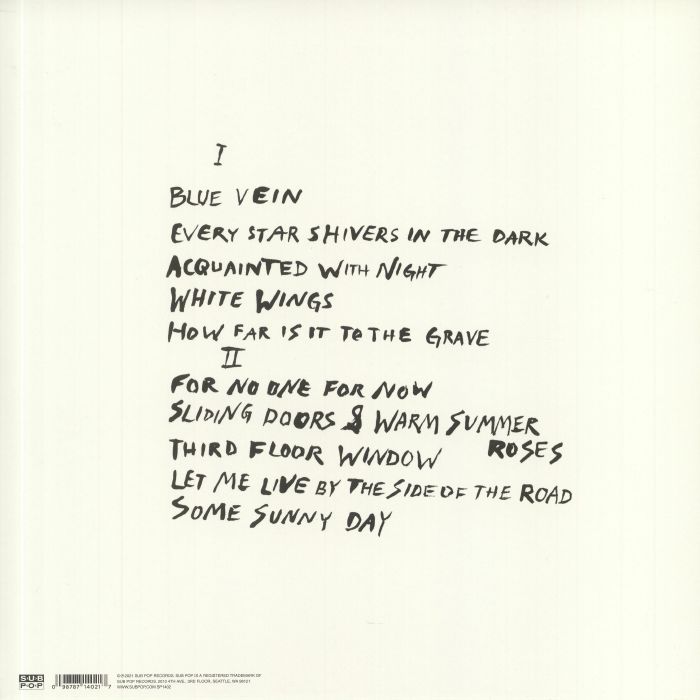 I
BLUE VEIN
EVERY STAR SHIVERS IN THE DARK
ACQUAINTED WITH NIGHT
WHITE WINGS
HOW FAR IS IT TO THE GRAVE
II
FOR NO ONE FOR NOW
SLIDING DOORS & WARM SUMMER
ROSES
THIRD FLOOR WINDOW
LET ME LIVE BY THE SIDE OF THE ROAD
SOME SUNNY DAY
SUB
POP
0 98787 14021 7
© ℗ 2021 SUB POP RECORDS. SUB POP IS A REGISTERED TRADEMARK OF
SUB POP RECORDS. 2013 4TH AVE., 3RD FLOOR, SEATTLE, WA 98121
WWW.SUBPOP.COM SP1402